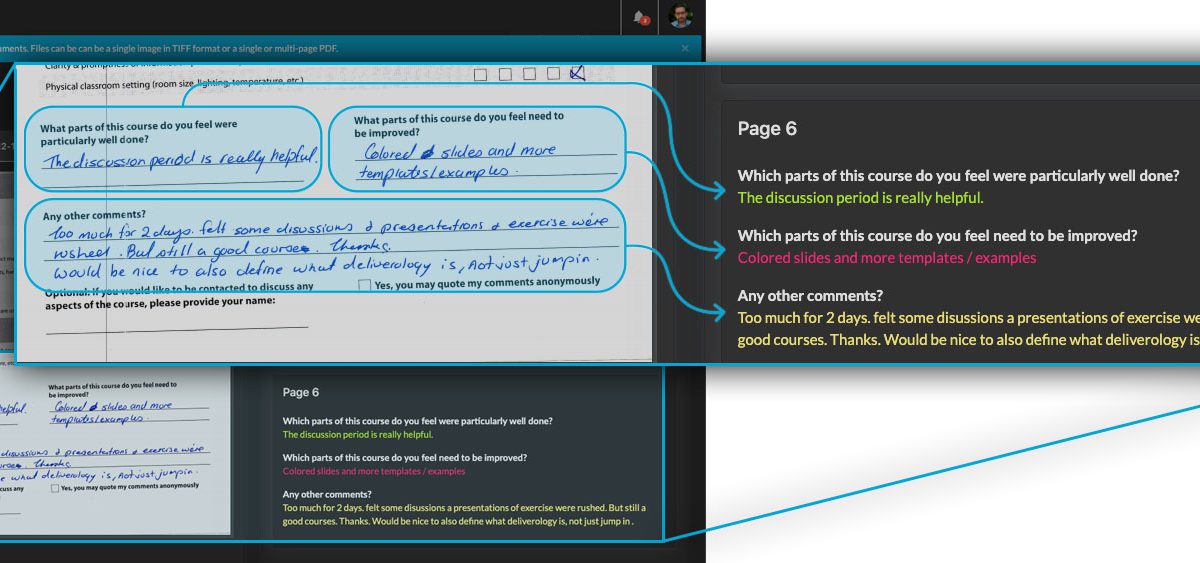 2
uments. Files can be can be a single image in TIFF format or a single or multi-page PDF.
Physical classroom setting (room size, lighting, temperature, etc.)
What parts of this course do you feel were
particularly well done?
The discussion period is really helpful.
What parts of this course do you feel need to
be improved?
Colored slides and more
templates/examples.
Any other comments?
Too much for 2 days. felt some disussions & presentations & exercise were
rushed. But still a good courses. Thanks.
Would be nice to also define what deliverology is, not just jump in.
Optional: If you would like to be contacted to discuss any
aspects of the course, please provide your name:
Yes, you may quote my comments anonymously
Page 6
Which parts of this course do you feel were particularly well done?
The discussion period is really helpful.
Which parts of this course do you feel need to be improved?
Colored slides and more templates / examples
Any other comments?
Too much for 2 days. felt some disussions a presentations of exercise we
good courses. Thanks. Would be nice to also define what deliverology is
What parts of this course do you feel need to
be improved?
helpful.
Colored slides and more
templates/examples.
disussions & presentations & exercise were
courses. Thanks.
e what deliverology is, not just jump in.
cuss any
Yes, you may quote my comments anonymously
Page 6
Which parts of this course do you feel were particularly well done?
The discussion period is really helpful.
Which parts of this course do you feel need to be improved?
Colored slides and more templates / examples
Any other comments?
Too much for 2 days. felt some disussions a presentations of exercise were rushed. But still a
good courses. Thanks. Would be nice to also define what deliverology is, not just jump in .